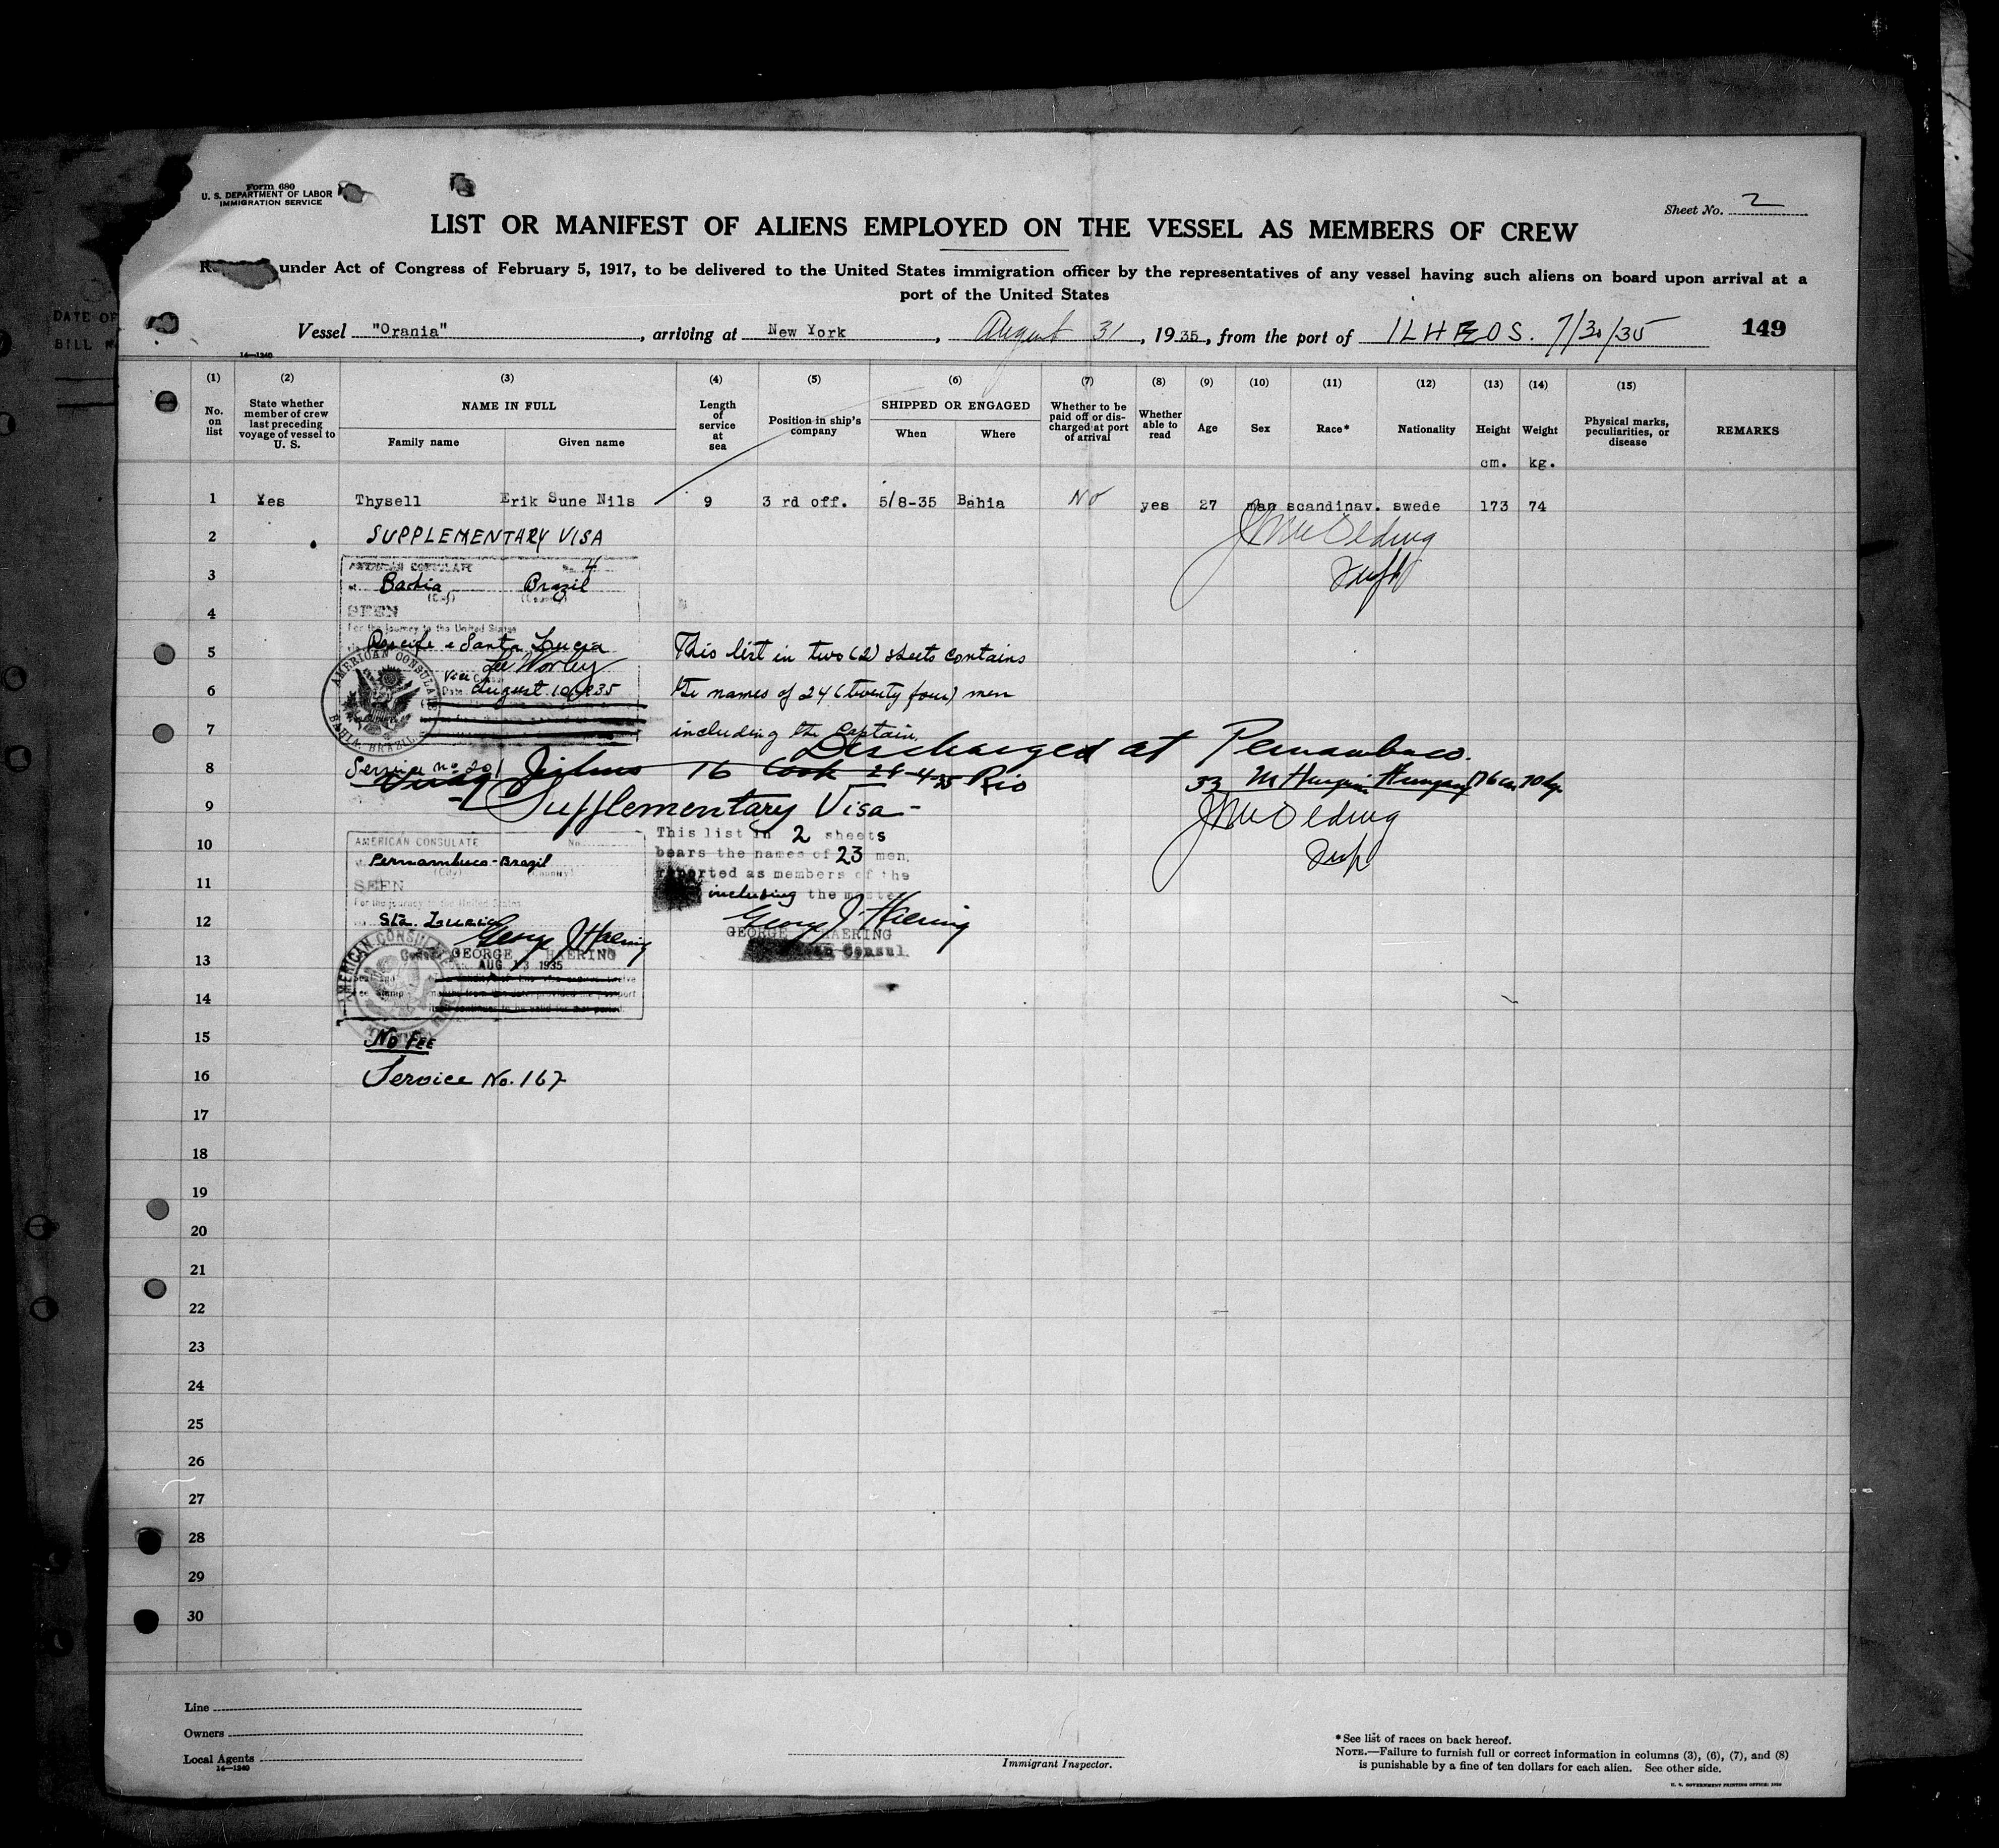 Form 680
U. S. DEPARTMENT OF LABOR
IMMIGRATION SERVICE
Sheet No. 2
LIST OR MANIFEST OF ALIENS EMPLOYED ON THE VESSEL AS MEMBERS OF CREW
under Act of Congress of February 5, 1917, to be delivered to the United States immigration officer by the representatives of any vessel having such aliens on board upon arrival at a
port of the United States
Vessel "Orania", arriving at New York, August 31, 1935, from the port of ILHEOS. 7/30/35 149
14—1240
(1) (2) (3) (4) (5) (6) (7) (8) (9) (10) (11) (12) (13) (14) (15)
No. on list
State whether member of crew last preceding voyage of vessel to U. S.
NAME IN FULL
Family name Given name
Length of service at sea
Position in ship's company
SHIPPED OR ENGAGED
When Where
Whether to be paid off or discharged at port of arrival
Whether able to read
Age
Sex
Race*
Nationality
Height
Weight
Physical marks, peculiarities, or disease
REMARKS
cm. kg.
1 Yes Thysell Erik Sune Nils 9 3 rd off. 5/8-35 Bahia No yes 27 man scandinav. swede 173 74
2 SUPPLEMENTARY VISA
AMERICAN CONSULATE No. 4
3 Bahia Brazil
(City) (Country)
4 SEEN
For the journey to the United States
5 Recife e Santa Lucia This list in two (2) sheets contains
Lee Worley
Vice
6 Date August 10, 1935 the names of 24 (twenty four) men
AMERICAN CONSULATE BAHIA, BRAZIL
7 including the Captain.
Discharged at Pernambuco.
8 Service no. 201 16 Cook 28-4-35 Rio 33 M 176 cm 70 kg.
9 Supplementary Visa-
10 AMERICAN CONSULATE No. This list in 2 sheets
Pernambuco-Brazil bears the names of 23 men,
(City) (Country)
11 SEEN reported as members of the
For the journey to the United States
including the master
12 Sta. Lucia George J Haering George J Haering
GEORGE HAERING
Consul.
13 GEORGE HAERING
AUG 13 1935
AMERICAN CONSULATE
14
15 No FEE
16 Service No. 167
17
18
19
20
21
22
23
24
25
26
27
28
29
30
Line
Owners
Local Agents
14—1240
Immigrant Inspector.
*See list of races on back hereof.
NOTE.—Failure to furnish full or correct information in columns (3), (6), (7), and (8)
is punishable by a fine of ten dollars for each alien. See other side.
DATE OF
BILL